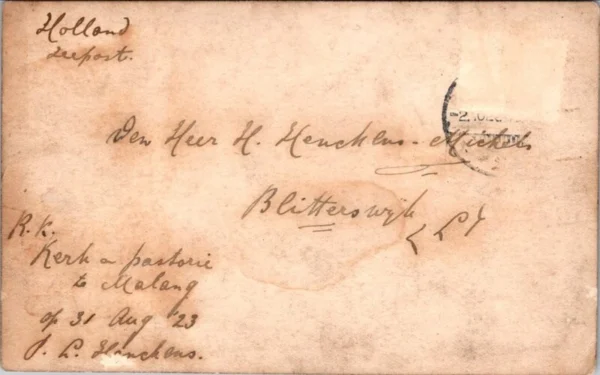 Holland
Zeepost.
-2.10.23
Den Heer H. Henckens-Michels
Blitterswijk
(L)
R.K.
Kerk & pastorie
te Malang
op 31 Aug '23
P. L. Henckens.